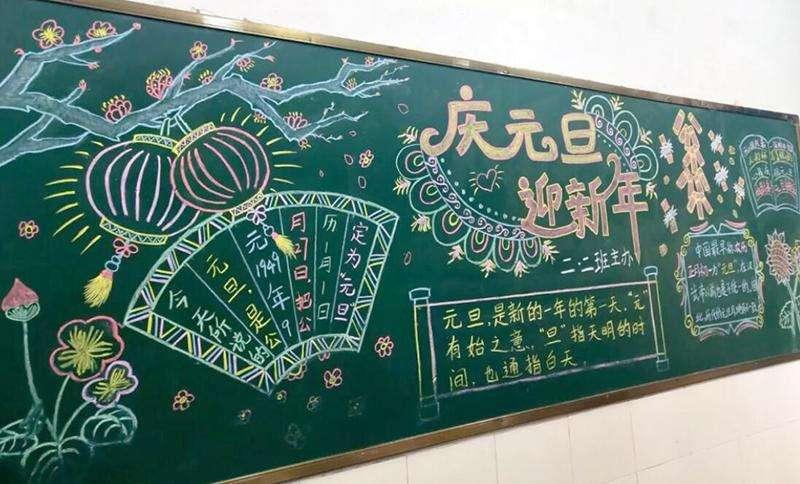 今天所说的
元旦，是公
元1949年9
月27日，把公
历一月一日
定为“元旦”
庆元旦
迎新年
二.二班主办
元旦，是新的一年的第一天，“元”
有始之意，“旦”指天明的时
间，也通指白天.
中国最早称农历
正月初一为“元旦”